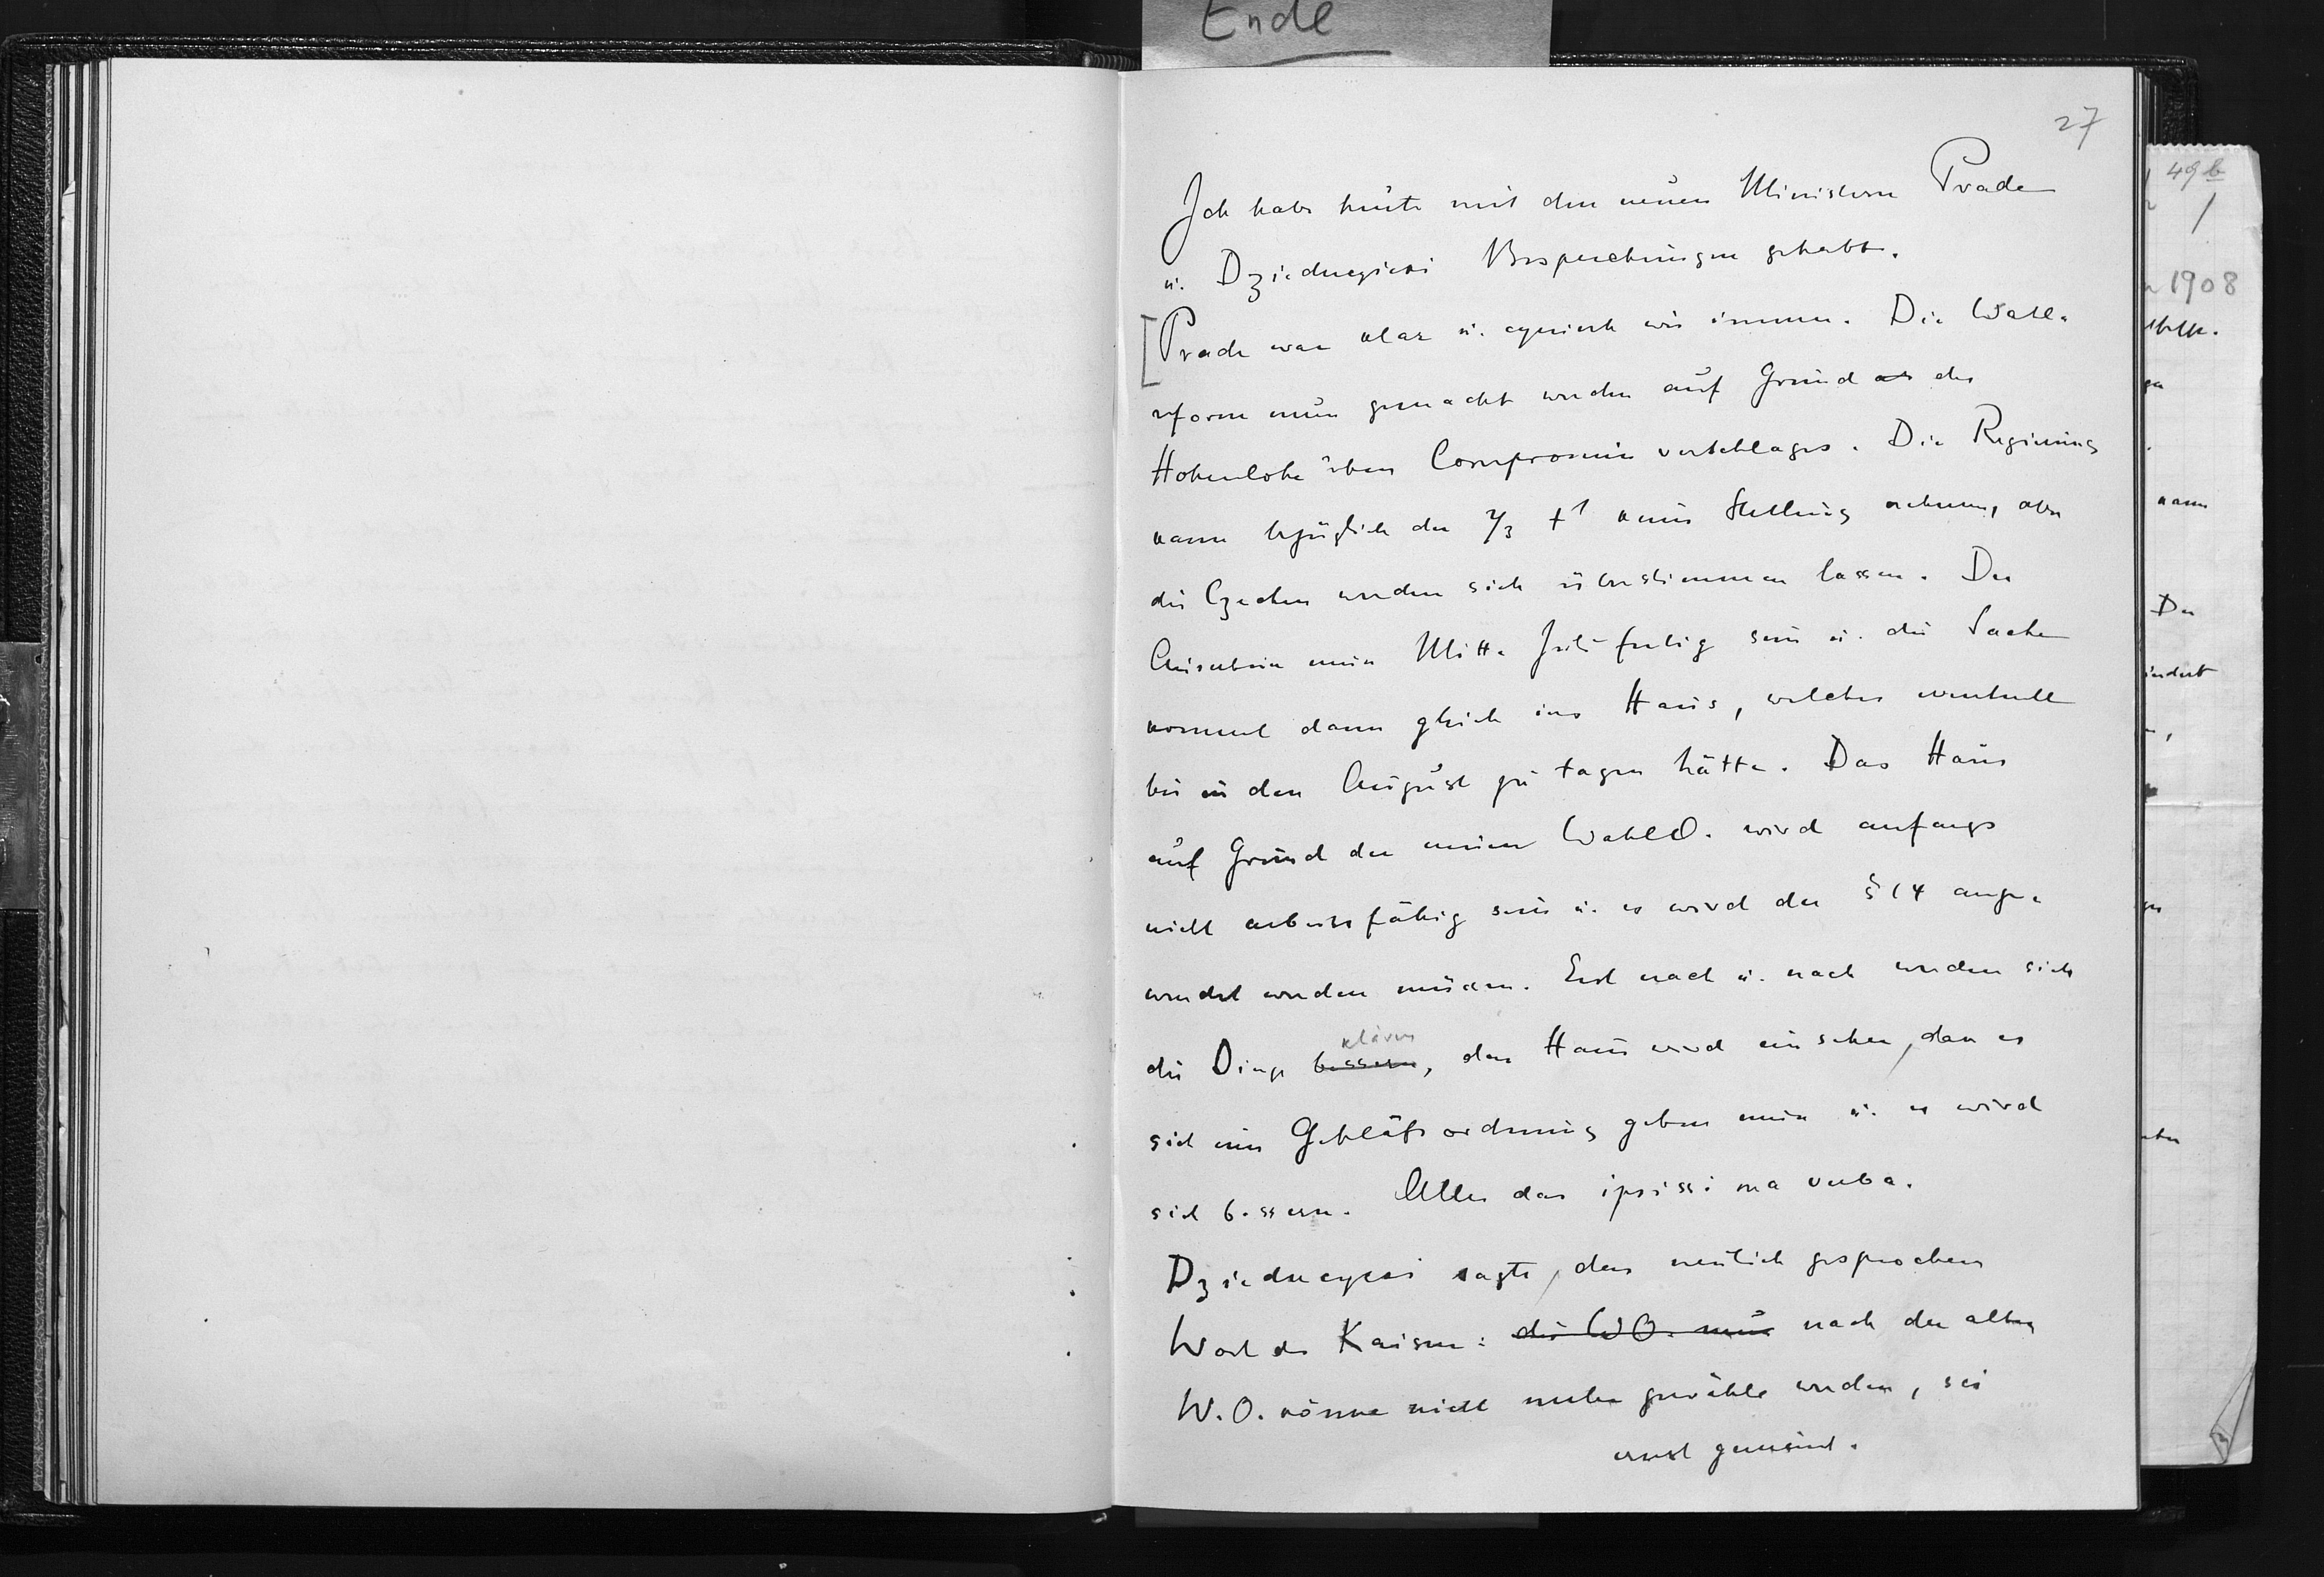 Ende
27
Ich habe heute mit den neuen Ministern Prade
u. Dzieduszycki Besprechungen gehabt.
[Prade war klar u. cynisch wie immer. Die Wahl-
reform muss gemacht werden auf Grund des
Hohenlohe'schen Compromissvorschlages. Die Regierung
kann bezüglich der 2/3 keine Stellung nehmen, aber
die Czechen werden sich überstimmen lassen. Der
Ausschuss muss Mitte Juli fertig sein u. die Sache
kommt dann gleich ins Haus, welches eventuell
bis in den August zu tagen hätte. Das Haus
auf Grund der neuen WahlO. wird anfangs
nicht arbeitsfähig sein u. es wird der § 14 ange-
wendet werden müssen. Erst nach u. nach werden sich
klären
die Dinge bessern, das Haus wird einsehen, dass es
sich eine Geschäftsordnung geben muss u. es wird
sich bessern. Alles das ipsissima verba.
Dzieduszycki sagte, das neulich gesprochene
Wort des Kaisers: die WO. muss nach der alten
W.O. könne nicht mehr gewählt werden, sei
ernst gemeint.
49b
1908
kann
Der
indert